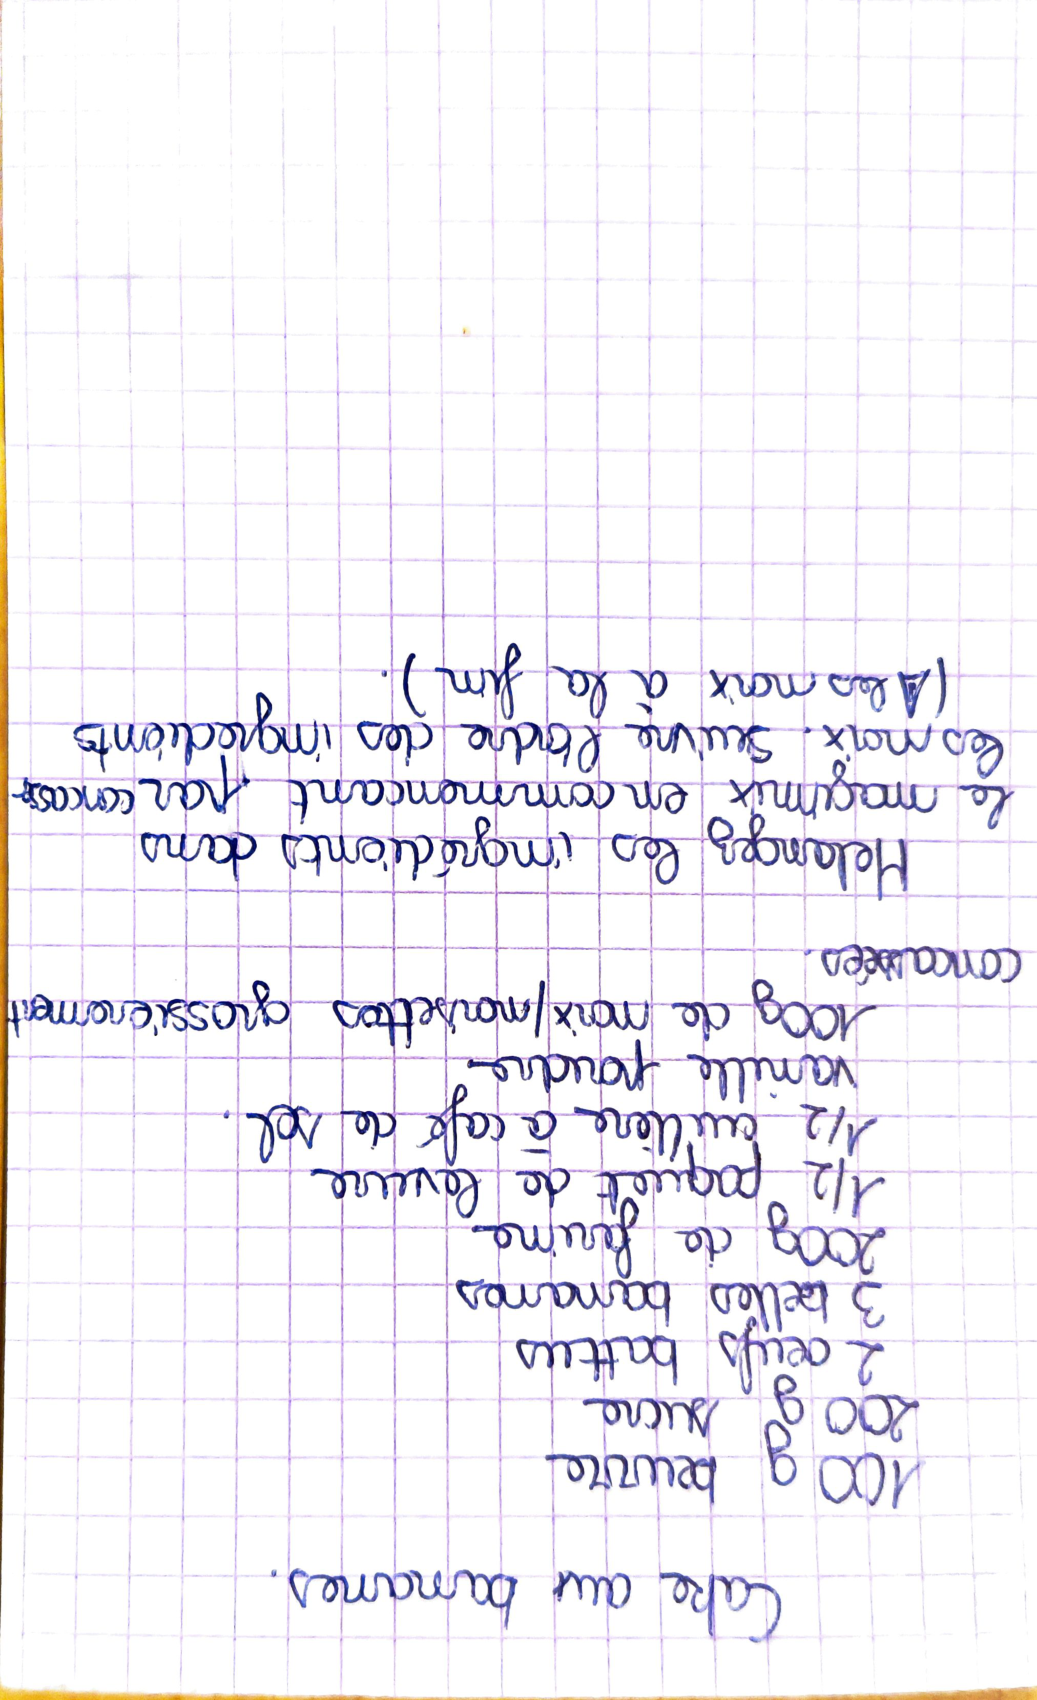 Cake aux bananes.
100 g beurre
200 g sucre
2 œufs battus
3 belles bananes
200g de farine
1/2 paquet de levure
1/2 cuillère à café de sel.
vanille poudre
100g de noix/noisettes grossièrement
concassées.
Melangez les ingrédients dans
le magimix en commencant par concasser
les noix. Suivre l'ordre des ingrédients
(Δ les noix à la fin).